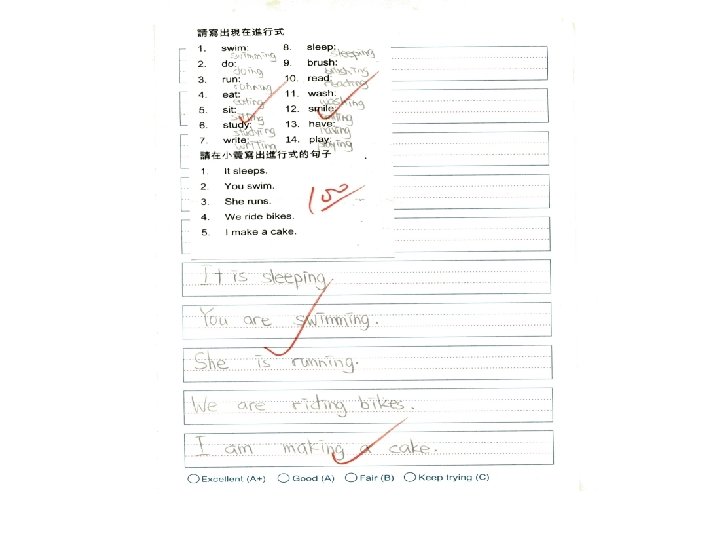 請寫出現在進行式
1. swim: 8. sleep:
swimming sleeping
2. do: 9. brush:
doing brushing
3. run: 10. read:
running reading
4. eat: 11. wash:
eating washing
5. sit: 12. smile:
6. study: 13. have:
studying having
7. write: 14. play:
writing playing
請在小黃寫出進行式的句子
1. It sleeps.
2. You swim.
3. She runs.
4. We ride bikes.
5. I make a cake.
100
It is sleeping.
You are swimming.
She is running.
We are riding bikes.
I am making a cake.
Excellent (A+) Good (A) Fair (B) Keep trying (C)